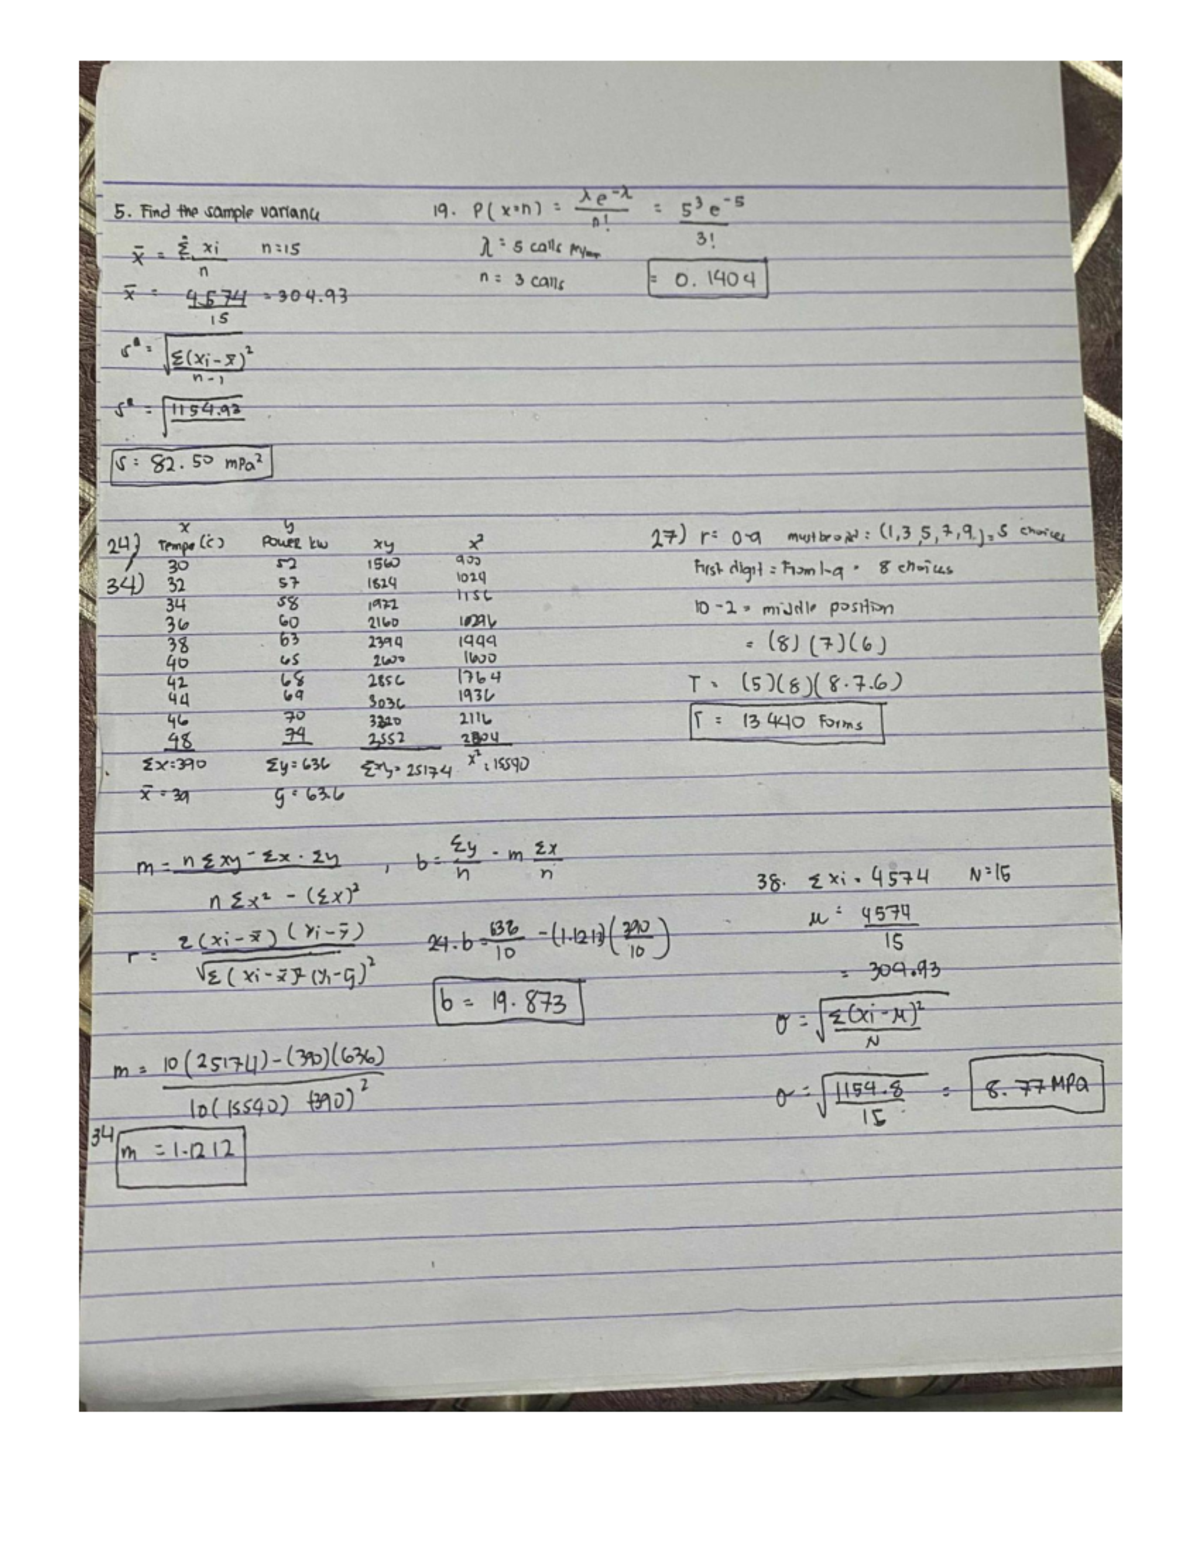 5. Find the sample variance
x̄ = Σ xi / n   n=15
x̄ = 4574 / 15 = 304.93
s² = √(Σ(xi - x̄)² / n-1)
s² = √1154.93
s = 82.50 mPa²
19. P(x=n) = λe^-λ / n! = 5³e^-5 / 3!
λ = 5 calls
n = 3 calls   = 0.1404
24) x Temps (c)   y Power kw   xy   x²
30   52   1560   900
34) 32   57   1824   1024
34   58   1972   1156
36   60   2160   1296
38   63   2394   1444
40   65   2600   1600
42   68   2856   1764
44   69   3036   1936
46   70   3220   2116
48   74   3552   2304
Σx=390   Σy=636   Σxy=25174   x²=15590
x̄ = 39   ȳ = 63.6
27) r= 0-9   must be odd: (1,3,5,7,9) = 5 choices
First digit = From 1-9 = 8 choices
10-2 = middle position
= (8)(7)(6)
T = (5)(8)(8.7.6)
T = 13 440 Forms
m = nΣxy - Σx · Σy / nΣx² - (Σx)² , b = Σy/n - m Σx/n
r = Σ(xi-x̄)(yi-ȳ) / √Σ(xi-x̄)²(yi-ȳ)²
24. b = 636/10 - (1.1212)(390/10)
b = 19.873
m = 10(25174)-(390)(636) / 10(15590) (390)²
34 m = 1.1212
38. Σxi = 4574   N=15
μ = 4574 / 15
= 304.93
σ = √(Σ(xi-μ)² / N)
σ = √(1154.8 / 15) = 8.77 MPa